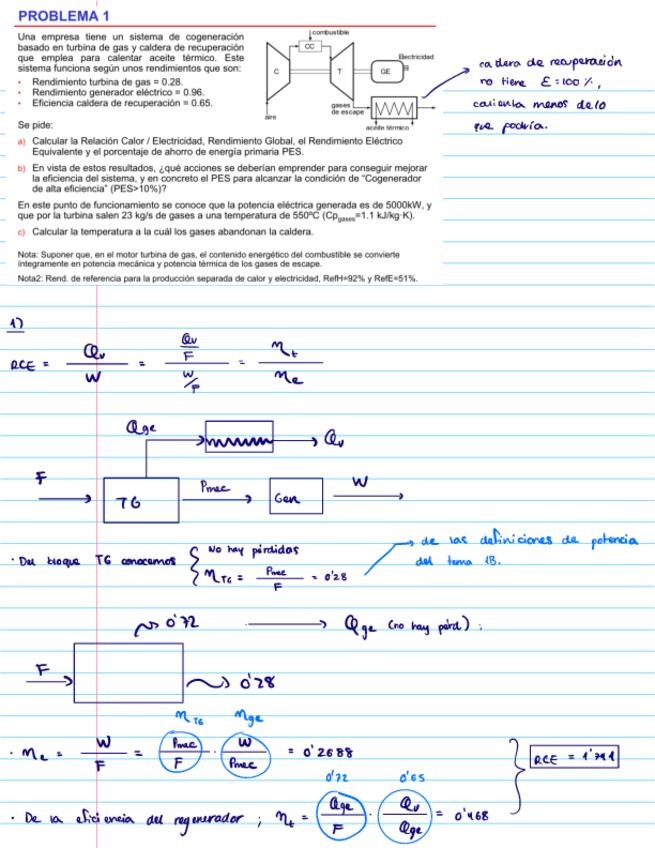 PROBLEMA 1
Una empresa tiene un sistema de cogeneración
basado en turbina de gas y caldera de recuperación
que emplea para calentar aceite térmico. Este
sistema funciona según unos rendimientos que son:
• Rendimiento turbina de gas = 0.28.
• Rendimiento generador eléctrico = 0.96.
• Eficiencia caldera de recuperación = 0.65.
combustible
CC
C
T
GE
Electricidad
gases
de escape
aire
aceite térmico
caldera de recuperación
no tiene ε = 100 %,
calienta menos de lo
que podría.
Se pide:
a) Calcular la Relación Calor / Electricidad, Rendimiento Global, el Rendimiento Eléctrico
Equivalente y el porcentaje de ahorro de energía primaria PES.
b) En vista de estos resultados, ¿qué acciones se deberían emprender para conseguir mejorar
la eficiencia del sistema, y en concreto el PES para alcanzar la condición de "Cogenerador
de alta eficiencia" (PES>10%)?
En este punto de funcionamiento se conoce que la potencia eléctrica generada es de 5000kW, y
que por la turbina salen 23 kg/s de gases a una temperatura de 550ºC (Cpgases=1.1 kJ/kg·K).
c) Calcular la temperatura a la cuál los gases abandonan la caldera.
Nota: Suponer que, en el motor turbina de gas, el contenido energético del combustible se convierte
íntegramente en potencia mecánica y potencia térmica de los gases de escape.
Nota2: Rend. de referencia para la producción separada de calor y electricidad, RefH=92% y RefE=51%.
1)
RCE = Qv / W = (Qv/F) / (W/F) = ηt / ηe
Qge
Qv
F
TG
Pmec
Gen
W
· Del bloque TG conocemos { No hay pérdidas
ηTG = Pmec / F = 0'28
de las definiciones de potencia
del tema 1B.
0'72 → Qge (no hay pérd) :
F
0'28
ηTG ηge
· ηe = W / F = Pmec / F · W / Pmec = 0'2688
RCE = 1'741
0'72 0'65
· De la eficiencia del regenerador ; ηt = Qge / F · Qv / Qge = 0'468